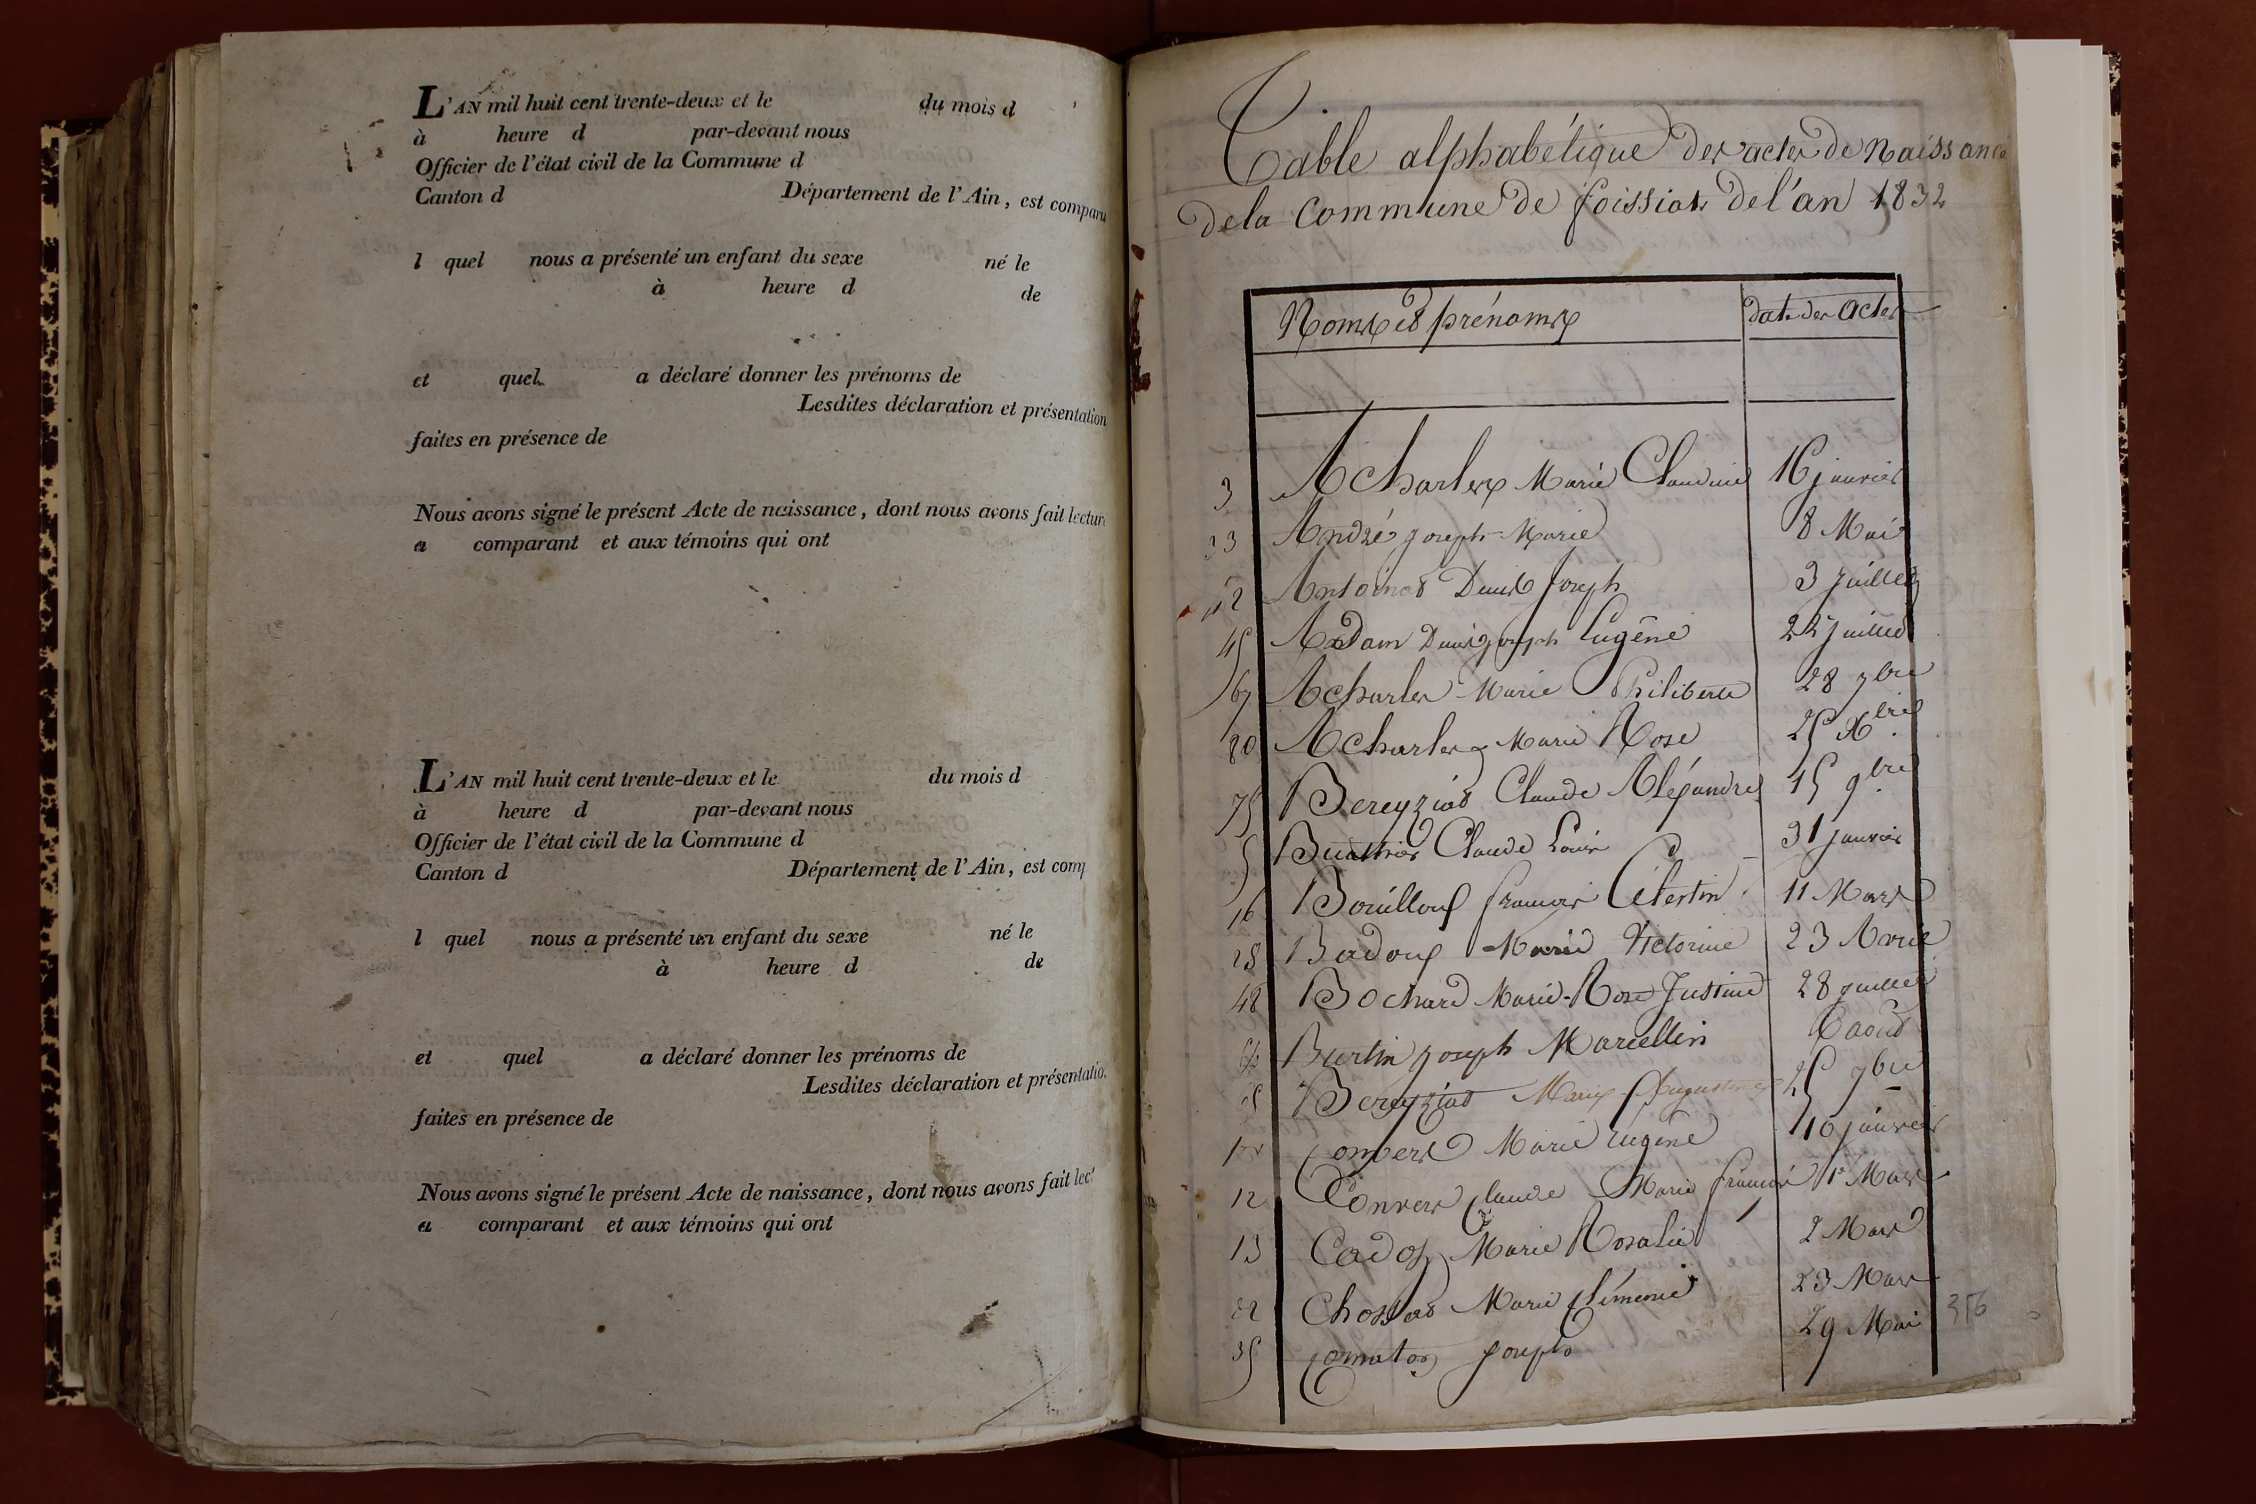 L'AN mil huit cent trente-deux et le du mois d
à heure d par-devant nous
Officier de l'état civil de la Commune d
Canton d Département de l'Ain, est comparu
l quel nous a présenté un enfant du sexe né le
à heure d de
et quel a déclaré donner les prénoms de
Lesdites déclaration et présentation
faites en présence de
Nous avons signé le présent Acte de naissance, dont nous avons fait lecture
a comparant et aux témoins qui ont
L'AN mil huit cent trente-deux et le du mois d
à heure d par-devant nous
Officier de l'état civil de la Commune d
Canton d Département de l'Ain, est comp
l quel nous a présenté un enfant du sexe né le
à heure d de
et quel a déclaré donner les prénoms de
Lesdites déclaration et présentatio
faites en présence de
Nous avons signé le présent Acte de naissance, dont nous avons fait lec
a comparant et aux témoins qui ont
Table alphabétique des actes de Naissance
de la Commune de foissiat de l'an 1832
Noms et prénoms date des Actes
3 Acharles Marie Claudine 16 janvier
33 André joseph-Marie 8 Mai
42 Antoinat Denis Joseph 3 juillet
45 Adam Denis joseph Eugêne 22 juillet
67 Acharles Marie Philiberte 28 7bre
80 Acharles Marie Rose 25 Xbre
75 Bereyziat Claude Aléxandre 15 9bre
5 Buathier Claude Louis 31 janvier
16 Bouilloux francois Célestin 11 Mars
28 Badoux Marie Victorine 23 Avril
48 Bochard Marie-Rose Justine 28 juillet
Burtin joseph Marcellin 6 aout
Bereyziat Marie Augustine 25 7bre
Convers Marie Eugène 10 janvier
12 Convers Claude Marie francois 1er Mars
13 Cadoz Marie Rosalie 2 Mars
22 Chossat Marie Clémence 23 Mars
35 Comaton joseph 29 Mai
356